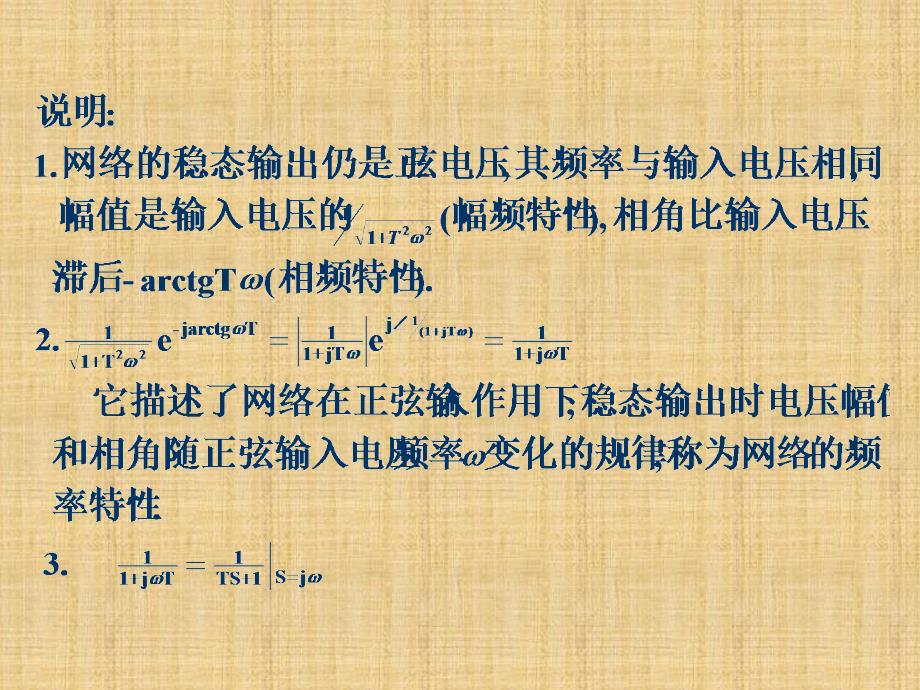 说明:
1.网络的稳态输出仍是正弦电压,其频率与输入电压相同,
幅值是输入电压的1/√(1+T²ω²)(幅频特性),相角比输入电压
滞后-arctgTω(相频特性).
2. 1/√(1+T²ω²) e^(-jarctgωT) = |1/(1+jTω)| e^(j∕1/(1+jTω)) = 1/(1+jωT)
它描述了网络在正弦输入作用下,稳态输出时电压幅值
和相角随正弦输入电压频率ω变化的规律,称为网络的频
率特性.
3. 1/(1+jωT) = 1/(TS+1)|S=jω